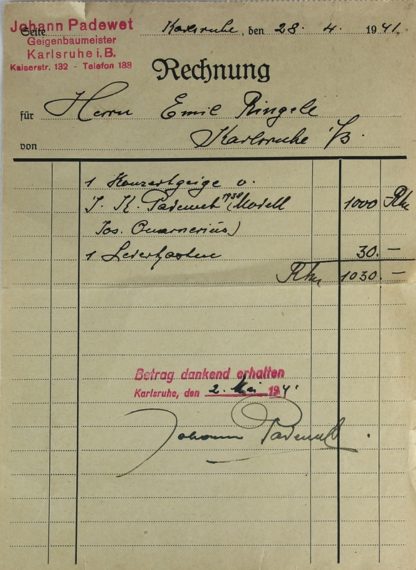 Johann Padewet
Geigenbaumeister
Karlsruhe i. B.
Kaiserstr. 132 - Telefon 188
Seite
Karlsruhe, den 28. 4. 1941.
Rechnung
für Herrn Emil Ringele
von Karlsruhe i/B.
1 Konzertgeige v.
J. K. Padewet (Modell 1000 Rℳ
Jos. Guarnerius)
1 Lederkasten 30.—
Rℳ 1030.—
Betrag dankend erhalten
Karlsruhe, den 2. Mai 1941
Johann Padewet.